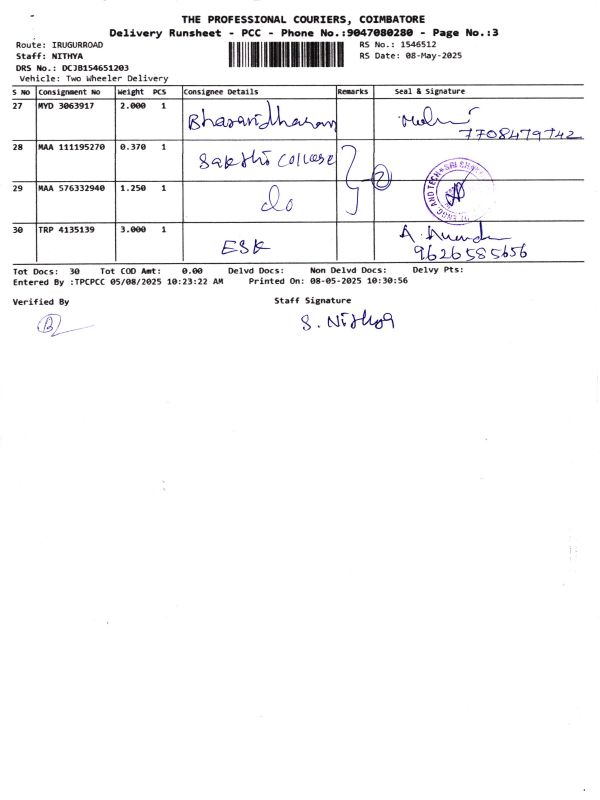 THE PROFESSIONAL COURIERS, COIMBATORE
Delivery Runsheet - PCC - Phone No.:9047080280 - Page No.:3
Route: IRUGURROAD RS No.: 1546512
Staff: NITHYA RS Date: 08-May-2025
DRS No.: DCJB154651203
Vehicle: Two Wheeler Delivery
S No Consignment No Weight PCS Consignee Details Remarks Seal & Signature
27 MYD 3063917 2.000 1 Bhasaridharan
7708479742
28 MAA 111195270 0.370 1 Sakthi college
29 MAA 576332940 1.250 1 do 2
ENGG AND TECH * SRI
30 TRP 4135139 3.000 1 ESK
9626585656
Tot Docs: 30 Tot COD Amt: 0.00 Delvd Docs: Non Delvd Docs: Delvy Pts:
Entered By :TPCPCC 05/08/2025 10:23:22 AM Printed On: 08-05-2025 10:30:56
Verified By Staff Signature
S. Nithya